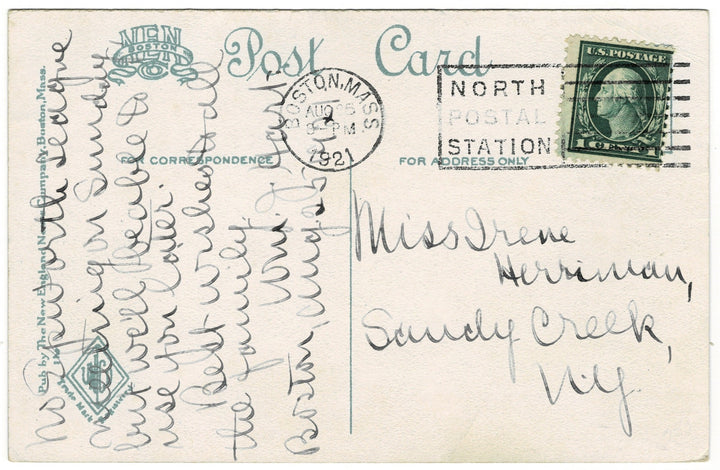 NEN
BOSTON
Post Card
BOSTON, MASS
AUG 25
PM
1921
NORTH
POSTAL
STATION
U.S. POSTAGE
1 CENT 1
FOR CORRESPONDENCE
FOR ADDRESS ONLY
Pub by The New England News Company, Boston, Mass.
Trade Mark
No Epworth League
meeting on Sunday
but will be able to
use you later.
Best wishes to all
the family.
Wm. J.
Boston, Aug. 25,
Miss Irene
Herriman,
Sandy Creek,
N.Y.